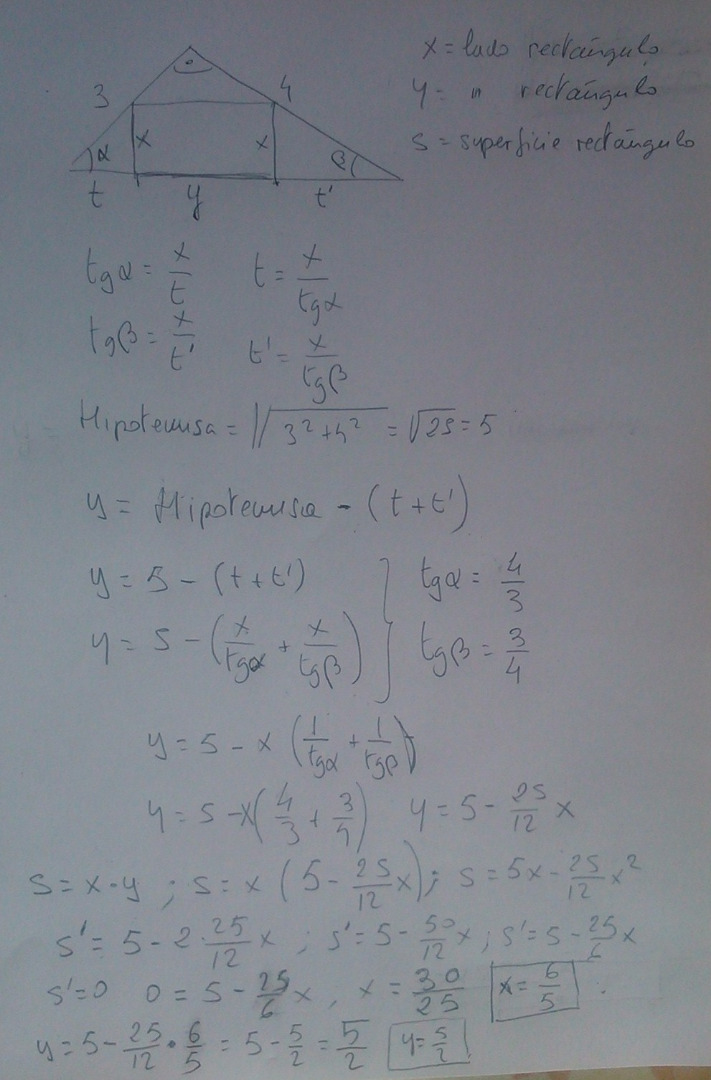 x = lado rectángulo
y = " rectángulo
s = superficie rectángulo
3 4
α x x β
t y t'
tgα = x/t t = x/tgα
tgβ = x/t' t' = x/tgβ
Hipotenusa = √(3²+4²) = √25 = 5
y = Hipotenusa - (t+t')
y = 5 - (t+t') } tgα = 4/3
y = 5 - (x/tgα + x/tgβ) } tgβ = 3/4
y = 5 - x (1/tgα + 1/tgβ)
y = 5 - x(4/3 + 3/4) y = 5 - 25/12 x
s = x·y ; s = x (5 - 25/12 x); s = 5x - 25/12 x²
s' = 5 - 2·25/12 x ; s' = 5 - 50/12 x ; s' = 5 - 25/6 x
s'=0 0 = 5 - 25/6 x, x = 30/25 x = 6/5
y = 5 - 25/12 • 6/5 = 5 - 5/2 = 5/2 y = 5/2